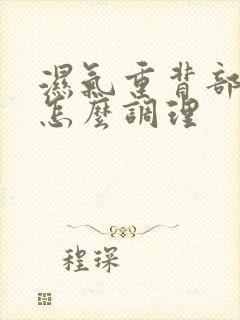 濕氣重背部
怎麼調理
程琛